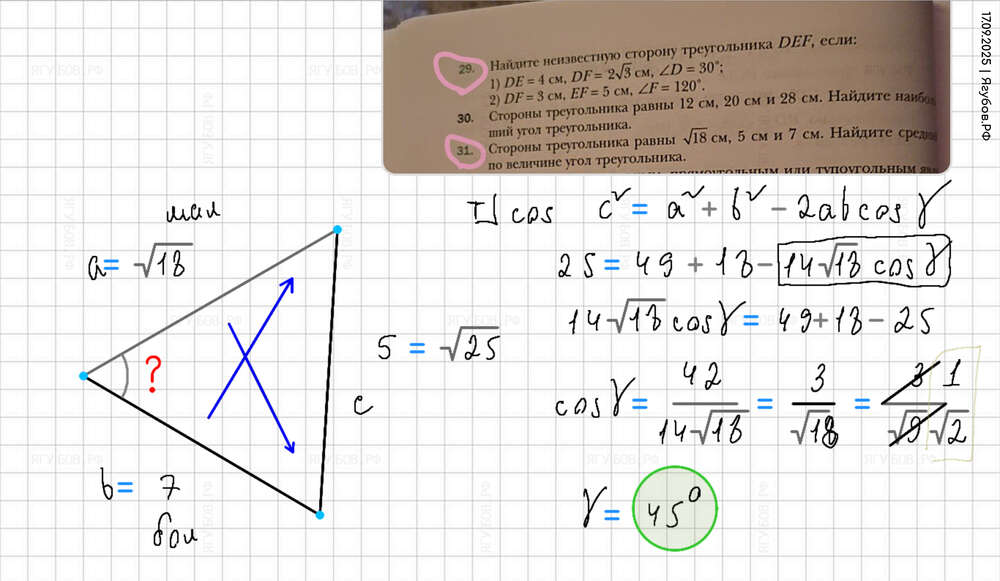 17.09.2025 | Ягубов.РФ
29. Найдите неизвестную сторону треугольника DEF, если:
1) DE = 4 см, DF = 2√3 см, ∠D = 30°;
2) DF = 3 см, EF = 5 см, ∠F = 120°.
30. Стороны треугольника равны 12 см, 20 см и 28 см. Найдите наибо
ший угол треугольника.
31. Стороны треугольника равны √18 см, 5 см и 7 см. Найдите средн
по величине угол треугольника.
прямоугольным или тупоугольным
мал
a = √18
?
b = 7
бол
5 = √25
c
cos c² = a² + b² - 2ab cos γ
25 = 49 + 18 - 14√18 cos γ
14√18 cos γ = 49 + 18 - 25
cos γ = 42/14√18 = 3/√18 = 3 1/√9 √2
γ = 45°